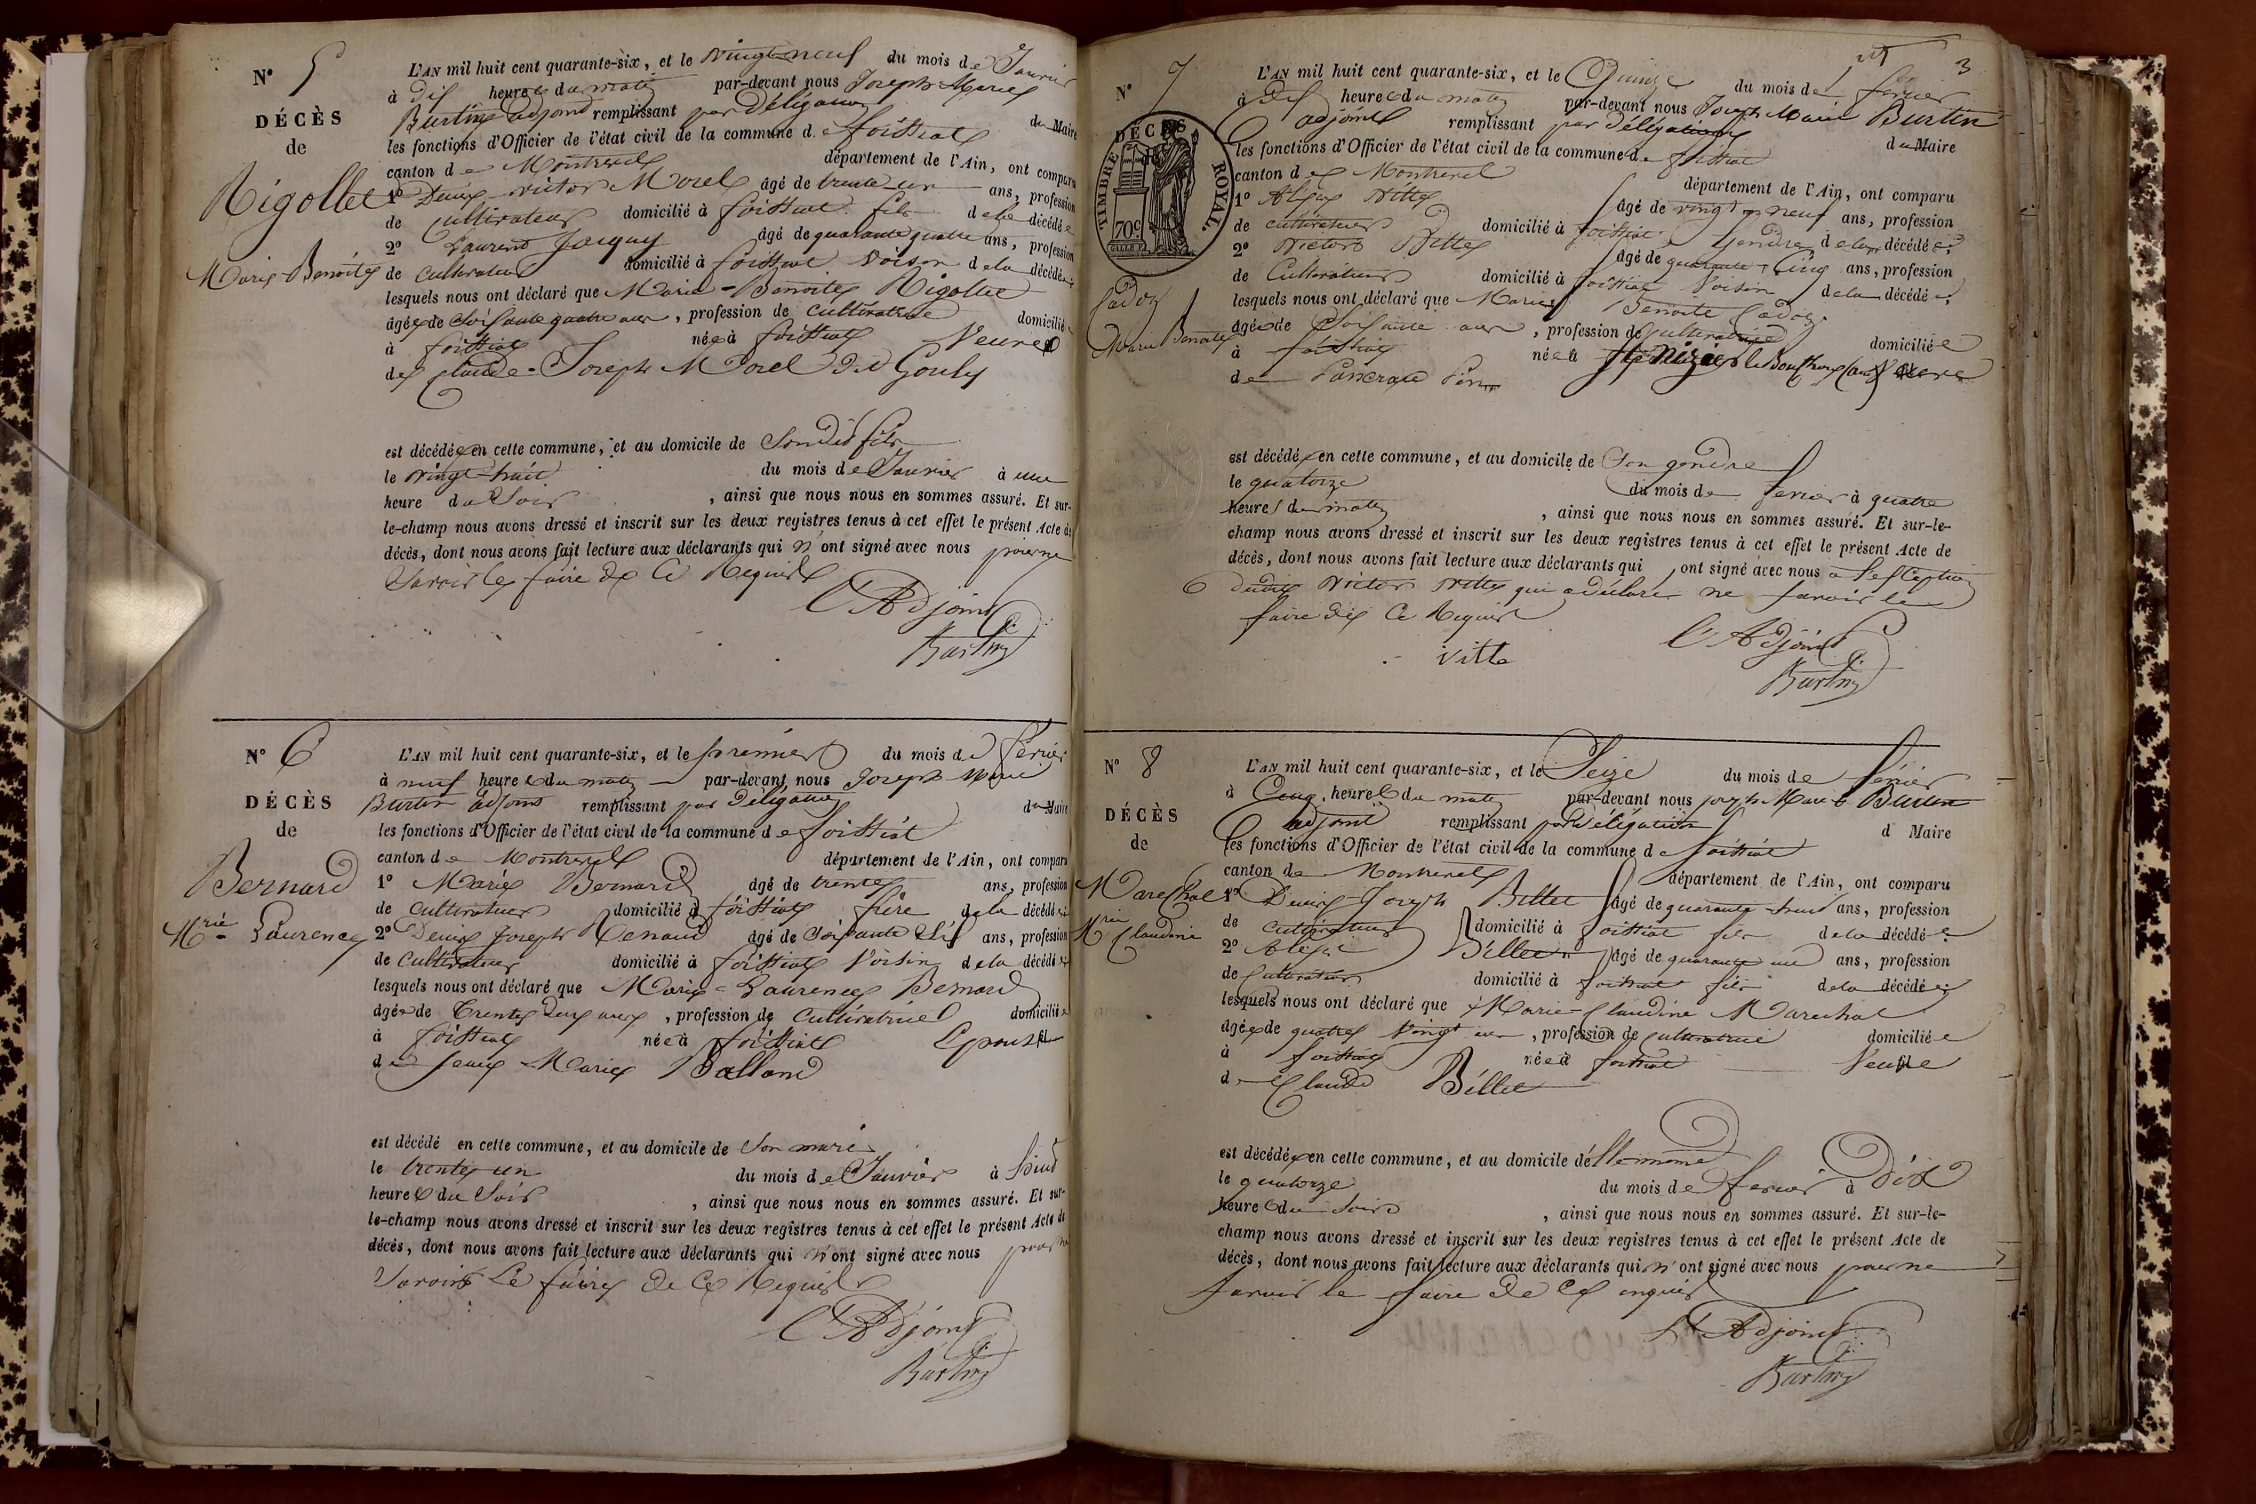 N° 5
DÉCÈS
de
Rigollet
Marie-Benoite
L'AN mil huit cent quarante-six, et le vingt neuf du mois de Janvier
à dix heures du matin par-devant nous Joseph Marie
Burtin adjoint remplissant par Délégation du Maire
les fonctions d'Officier de l'état civil de la commune de foissiat
canton de Montrevel département de l'Ain, ont comparu
1° Denis Victor Morel âgé de trente un ans, profession
de cultivateur domicilié à foissiat fils de la décédée
2° Laurent âgé de quarante quatre ans, profession
de cultivateur domicilié à foissiat voison de la décédée
lesquels nous ont déclaré que Marie-Benoite Rigollet
âgée de soisante quatre ans, profession de cultivatrice domiciliée
à foissiat née à foissiat Veuve
de Claude-Joseph Morel
est décédée en cette commune, et au domicile de Son dit fils
le vingt-huit du mois de Janvier à une
heure du Soir, ainsi que nous nous en sommes assuré. Et sur-
le-champ nous avons dressé et inscrit sur les deux registres tenus à cet effet le présent Acte de
décès, dont nous avons fait lecture aux déclarants qui n'ont signé avec nous pour ne
Savoir le faire de ce Requis
L'Adjoint
Burtin
N° 6
DÉCÈS
de
Bernard
Mrie Laurence
L'AN mil huit cent quarante-six, et le premier du mois de Février
à neuf heures du matin par-devant nous Joseph Marie
Burtin adjoint remplissant par Délégation du Maire
les fonctions d'Officier de l'état civil de la commune de foissiat
canton de Montrevel département de l'Ain, ont comparu
1° Marie Bernard âgé de trente ans, profession
de cultivateur domicilié à foissiat frère de la décédée
2° Denis Joseph Renaud âgé de soisante dix ans, profession
de cultivateur domicilié à foissiat Voisin de la décédée
lesquels nous ont déclaré que Marie-Laurence Bernard
âgée de trente deux ans, profession de cultivatrice domiciliée
à foissiat née à foissiat Epouse
de Jean-Marie Balland
est décédé en cette commune, et au domicile de Son mari
le trente un du mois de Janvier à
heures du Soir, ainsi que nous nous en sommes assuré. Et sur-
le-champ nous avons dressé et inscrit sur les deux registres tenus à cet effet le présent Acte de
décès, dont nous avons fait lecture aux déclarants qui n'ont signé avec nous pour ne
Savoir Le faire de ce Requis
L'Adjoint
Burtin
3
N° 7
DÉCÈS
TIMBRE ROYAL.
70c
Cadoz
Marie Benoite
L'AN mil huit cent quarante-six, et le Quinze du mois de fevrier
à dix heures du matin par-devant nous Joseph Marie Burtin
adjoint remplissant par Délégation du Maire
les fonctions d'Officier de l'état civil de la commune de foissiat
canton de Montrevel département de l'Ain, ont comparu
1° Alexis Vitte âgé de vingt neuf ans, profession
de cultivateur domicilié à foissiat Gendre de la décédée
2° Victor Vitte âgé de quarante cinq ans, profession
de Cultivateur domicilié à foissiat Voisin de la décédée
lesquels nous ont déclaré que Marie Benoite Cadoz
âgée de Soisante ans, profession de cultivatrice domiciliée
à foissiat née à St Nizier le Bouchoux Veuve
de Pancrace
est décédée en cette commune, et au domicile de Son gendre
le quatorze du mois de fevrier à quatre
heures du matin, ainsi que nous nous en sommes assuré. Et sur-le-
champ nous avons dressé et inscrit sur les deux registres tenus à cet effet le présent Acte de
décès, dont nous avons fait lecture aux déclarants qui ont signé avec nous a l'exception
dudit Victor Vitte qui a déclarer ne savoir le
faire de ce Requis
Vitte
L'Adjoint
Burtin
N° 8
DÉCÈS
de
Marechal
Mrie Claudine
L'AN mil huit cent quarante-six, et le Seize du mois de Février
à Cinq heures du matin par-devant nous Joseph Marie Burtin
adjoint remplissant par Délégation d Maire
les fonctions d'Officier de l'état civil de la commune de foissiat
canton de Montrevel département de l'Ain, ont comparu
1° Denis-Joseph Billet âgé de quarante huit ans, profession
de cultivateur domicilié à foissiat fils de la décédée
2° Alexis Billet âgé de quarante un ans, profession
de Cultivateur domicilié à foissiat fils de la décédée
lesquels nous ont déclaré que Marie-Claudine Marechal
âgée de quatre Vingt ans, profession de cultivatrice domiciliée
à foissiat née à foissiat Veuve
de Claude Billet
est décédée en cette commune, et au domicile d'elle même
le quatorze du mois de fevrier à Dix
heures du soir, ainsi que nous nous en sommes assuré. Et sur-le-
champ nous avons dressé et inscrit sur les deux registres tenus à cet effet le présent Acte de
décès, dont nous avons fait lecture aux déclarants qui n'ont signé avec nous pour ne
savoir le faire de ce enquis
L'Adjoint
Burtin